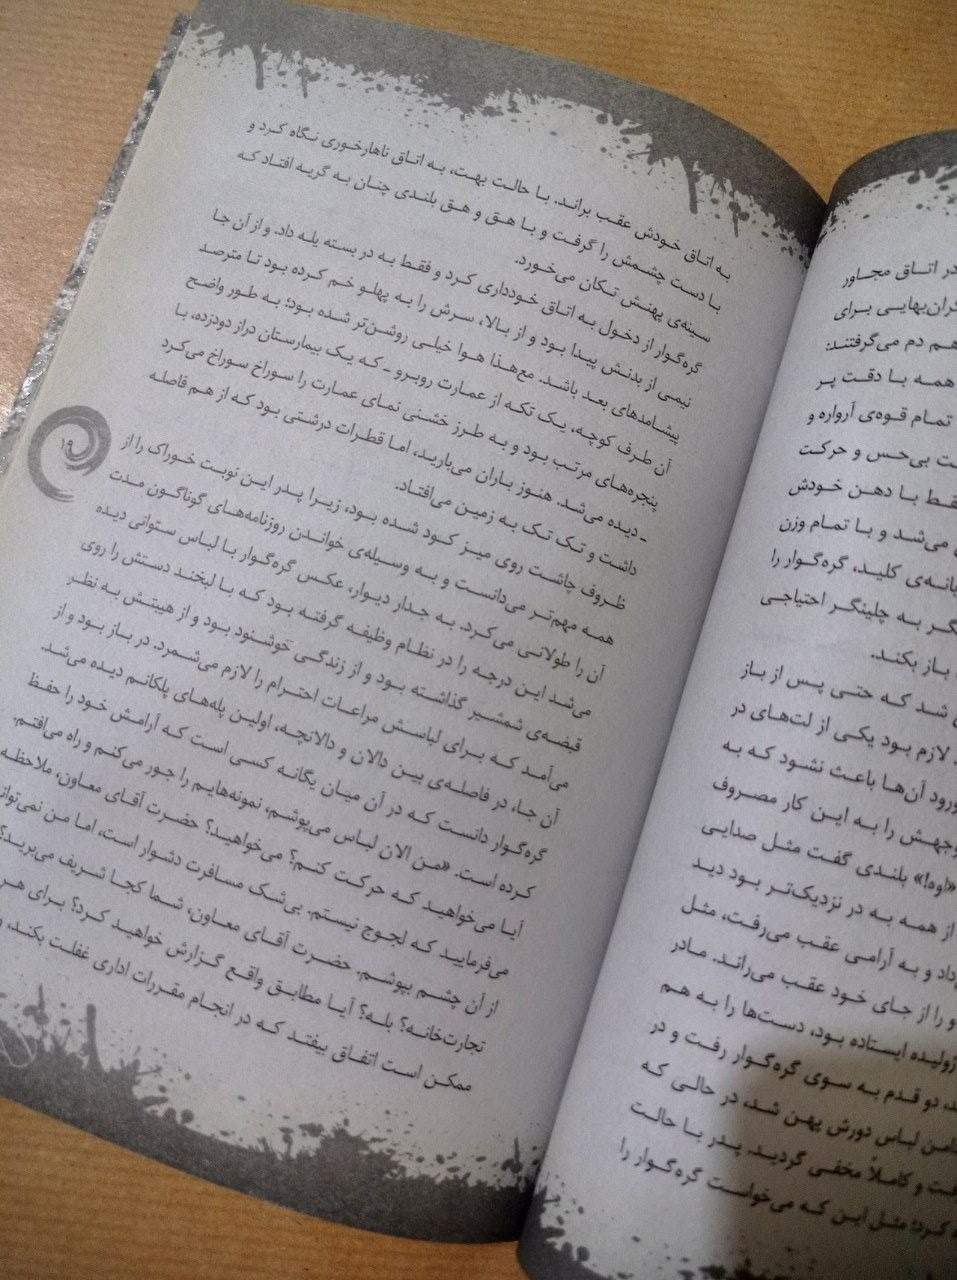 در اتاق مجاور
برای
هم دم می‌گرفتند:
همه با دقت پر
تمام قوه‌ی آرواره و
بی‌حس و حرکت
با دهن خودش
می‌شد و با تمام وزن
کلید، گره‌گوار را
به چلینگر احتیاجی
باز بکند.
شد که حتی پس از باز
لازم بود یکی از لت‌های در
ورود آن‌ها باعث نشود که به
را به این کار مصروف
«اوه!» بلندی گفت مثل صدایی
از همه به در نزدیک‌تر بود دید
و به آرامی عقب می‌رفت، مثل
و را از جای خود عقب می‌راند. مادر
ژولیده ایستاده بود، دست‌ها را به هم
دو قدم به سوی گره‌گوار رفت و در
لباس دورش پهن شد، در حالی که
و کاملاً مخفی گردید. پدر با حالت
کرد؛ مثل این که می‌خواست گره‌گوار را
به اتاق خودش عقب براند. با حالت بهت، به اتاق ناهارخوری نگاه کرد و
با دست چشمش را گرفت و با هق و هق بلندی چنان به گریه افتاد که
سینه‌ی پهنش تکان می‌خورد.
گره‌گوار از دخول به اتاق خودداری کرد و فقط به در بسته یله داد. و از آن جا
نیمی از بدنش پیدا بود و از بالا، سرش را به پهلو خم کرده بود تا مترصد
پیشامدهای بعد باشد. مع‌هذا هوا خیلی روشن‌تر شده بود؛ به طور واضح
آن طرف کوچه، یک تکه از عمارت روبرو ـ که یک بیمارستان دراز دودزده، با
پنجره‌های مرتب بود و به طرز خشنی نمای عمارت را سوراخ سوراخ می‌کرد
ـ دیده می‌شد. هنوز باران می‌بارید، اما قطرات درشتی بود که از هم فاصله
داشت و تک تک به زمین می‌افتاد.
ظروف چاشت روی میز کود شده بود، زیرا پدر این نوبت خوراک را از
همه مهم‌تر می‌دانست و به وسیله‌ی خواندن روزنامه‌های گوناگون مدت
آن را طولانی می‌کرد. به جدار دیوار، عکس گره‌گوار با لباس ستوانی دیده
می‌شد این درجه را در نظام وظیفه گرفته بود که با لبخند دستش را روی
قبضه‌ی شمشیر گذاشته بود و از زندگی خوشنود بود و از هیبتش به نظر
می‌آمد که برای لباسش مراعات احترام را لازم می‌شمرد. در باز بود و از
آن جا، در فاصله‌ی بین دالان و دالانچه، اولین پله‌های پلکانم دیده می‌شد.
گره‌گوار دانست که در آن میان یگانه کسی است که آرامش خود را حفظ
کرده است. «من الان لباس می‌پوشم، نمونه‌هایم را جور می‌کنم و راه می‌افتم.
آیا می‌خواهید که حرکت کنم؟ می‌خواهید؟ حضرت آقای معاون، ملاحظه
می‌فرمایید که لجوج نیستم. بی‌شک مسافرت دشوار است، اما من
از آن چشم بپوشم. حضرت آقای معاون، شما کجا شریف می‌برید؟
تجارت‌خانه؟ بله؟ آیا مطابق واقع گزارش خواهید کرد؟ برای هر
ممکن است اتفاق بیفتد که در انجام مقررات اداری غفلت بکند،
۱۹